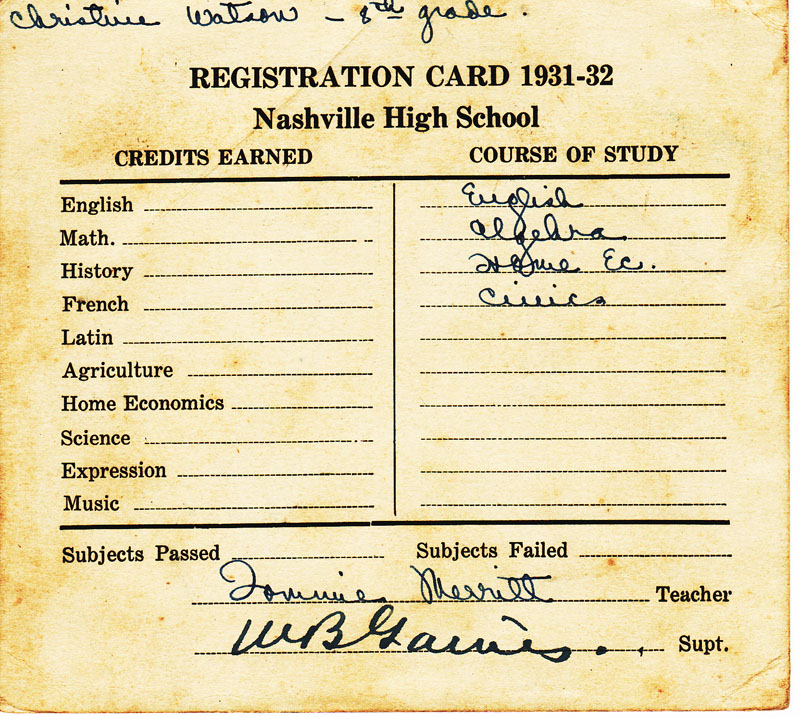 Christine Watson - 8th grade.
REGISTRATION CARD 1931-32
Nashville High School
CREDITS EARNED
COURSE OF STUDY
English
English
Math.
Algebra
History
Home Ec.
French
Civics
Latin
Agriculture
Home Economics
Science
Expression
Music
Subjects Passed
Subjects Failed
Tommie Merritt Teacher
W B Gaines. Supt.